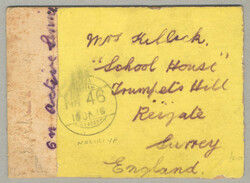 on active Service
46
Mrs Killick.
"School House"
Trumpet's Hill
Reigate
Surrey
England.